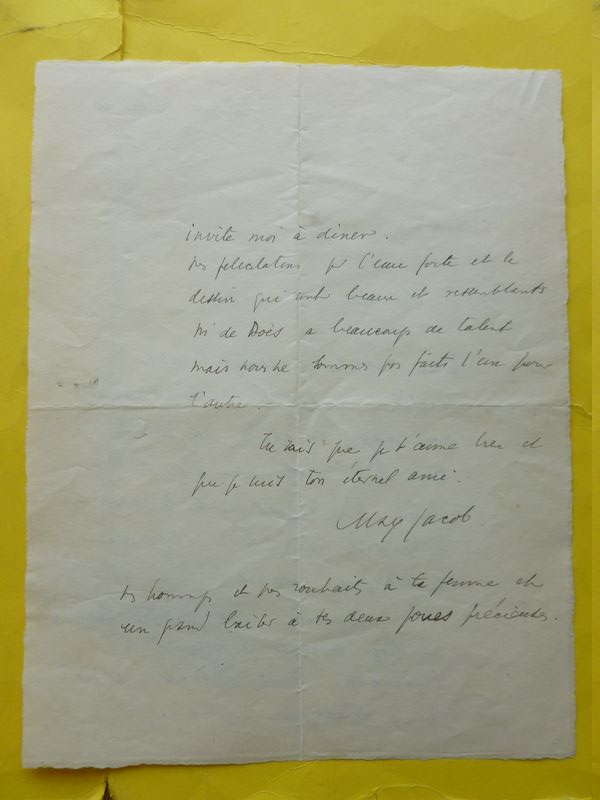 invite moi à diner.
félicitations pr l'eau forte et le
dessin qui sont beaux et ressemblants
Mr de Doës a beaucoup de talent
mais nous ne sommes pas faits l'un pour
l'autre.
Tu sais que je t'aime bien et
que je suis ton éternel ami.
Max Jacob
hommages et souhaits à ta femme et
un grand baiser à tes deux joues précieuses.